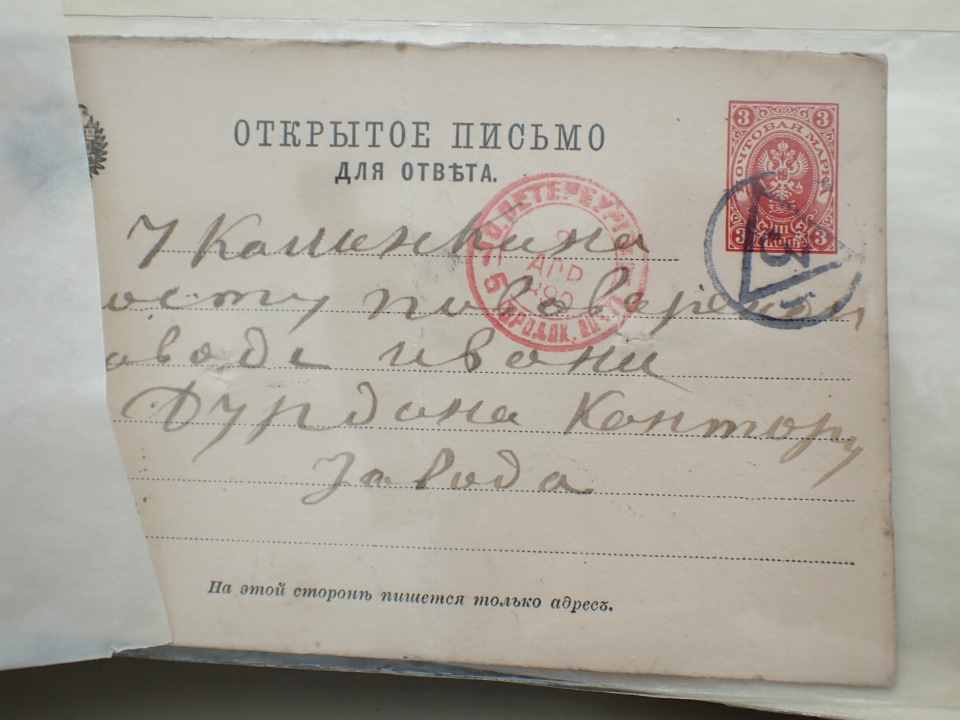 ОТКРЫТОЕ ПИСЬМО
ДЛЯ ОТВѢТА.
3 3
ПОЧТОВАЯ МАРКА
3 3
С.ПЕТЕРБУРГЪ
2
АПР
1890
5 ГОРОДСК. ПОЧТА
3
У Калинкина
осту пивоварен
аводе ивана
Дурдина Контору
Завода
На этой сторонѣ пишется только адресъ.